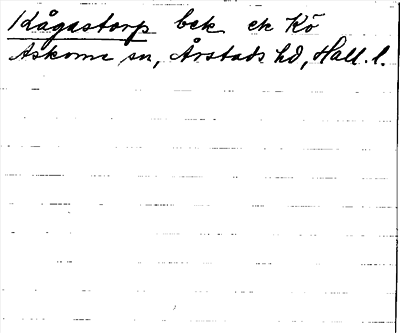 Kågastorp bek ek Kö
Askome sn, Årstads hd, Hall. l.